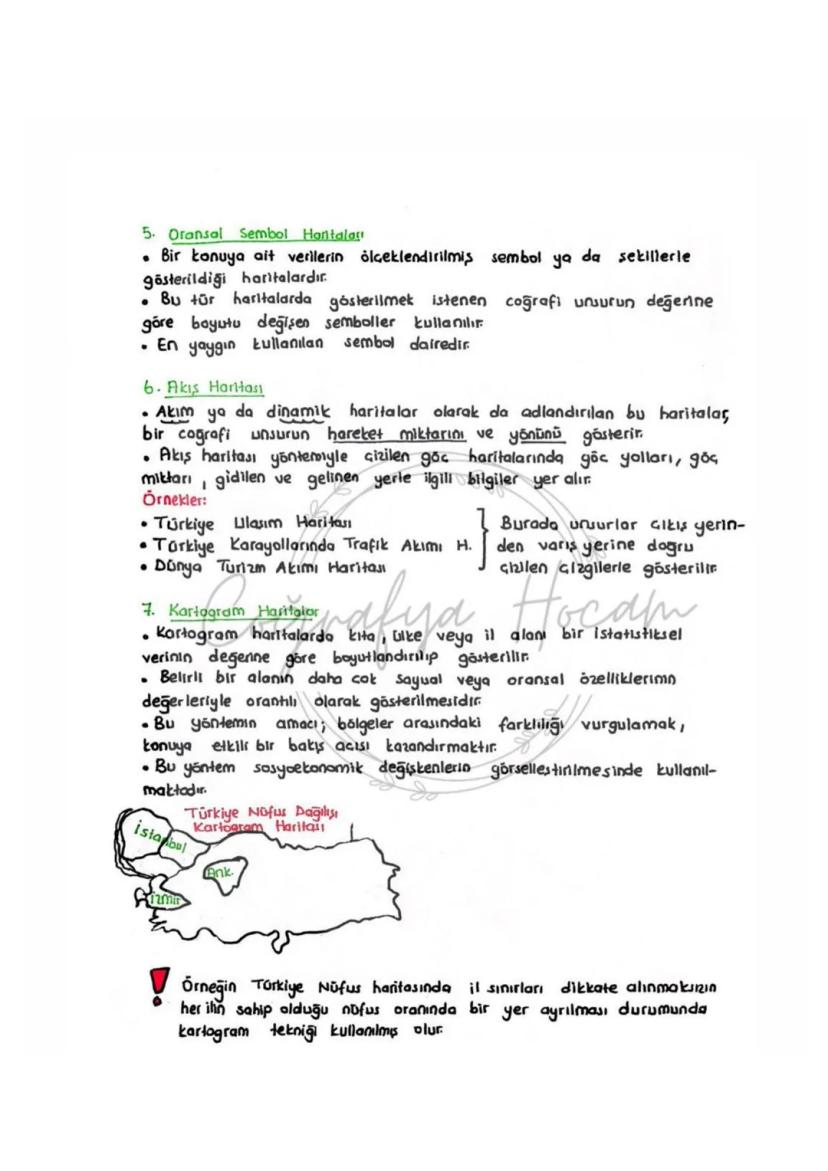 5. Oransal Sembol Haritaları
• Bir konuya ait verilerin ölçeklendirilmiş sembol ya da şekillerle
gösterildiği haritalardır.
• Bu tür haritalarda gösterilmek istenen coğrafi unsurun değerine
göre boyutu değişen semboller kullanılır.
• En yaygın kullanılan sembol dairedir.
6. Akış Haritası
• Akım ya da dinamik haritalar olarak da adlandırılan bu haritalar,
bir coğrafi unsurun hareket miktarını ve yönünü gösterir.
• Akış haritası yöntemiyle çizilen göç haritalarında göç yolları, göç
miktarı, gidilen ve gelinen yerle ilgili bilgiler yer alır.
Örnekler:
• Türkiye Ulaşım Haritası
• Türkiye Karayollarında Trafik Akımı H.
• Dünya Turizm Akımı Haritası
Burada unsurlar çıkış yerin-
den varış yerine doğru
çizilen çizgilerle gösterilir.
Coğrafya Hocam
7. Kartogram Haritalar
• Kartogram haritalarda kıta, ülke veya il alanı bir istatistiksel
verinin değerine göre boyutlandırılıp gösterilir.
• Belirli bir alanın daha çok sayısal veya oransal özelliklerinin
değerleriyle orantılı olarak gösterilmesidir.
• Bu yöntemin amacı; bölgeler arasındaki farklılığı vurgulamak,
konuya etkili bir bakış açısı kazandırmaktır.
• Bu yöntem sosyoekonomik değişkenlerin görselleştirilmesinde kullanıl-
maktadır.
Türkiye Nüfus Dağılışı
Kartogram Haritası
İstanbul
Ank.
İzmir
! Örneğin Türkiye Nüfus haritasında il sınırları dikkate alınmaksızın
her ilin sahip olduğu nüfus oranında bir yer ayrılması durumunda
kartogram tekniği kullanılmış olur.